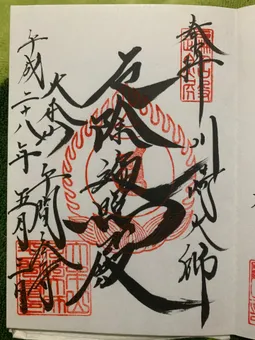 奉拝 川崎大師
厄除遍照殿
大本山 平間寺
平成二十八年 五月